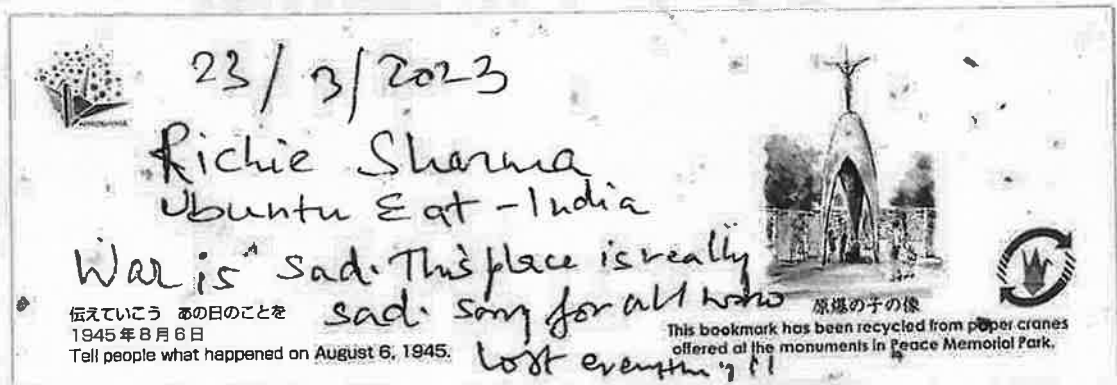 23/3/2023
Richie Sharma
Ubuntu Eat - India
War is sad. This place is really
sad. Sorry for all who
lost everything!!
伝えていこう あの日のことを
1945年8月6日
Tell people what happened on August 6, 1945.
原爆の子の像
This bookmark has been recycled from paper cranes
offered at the monuments in Peace Memorial Park.